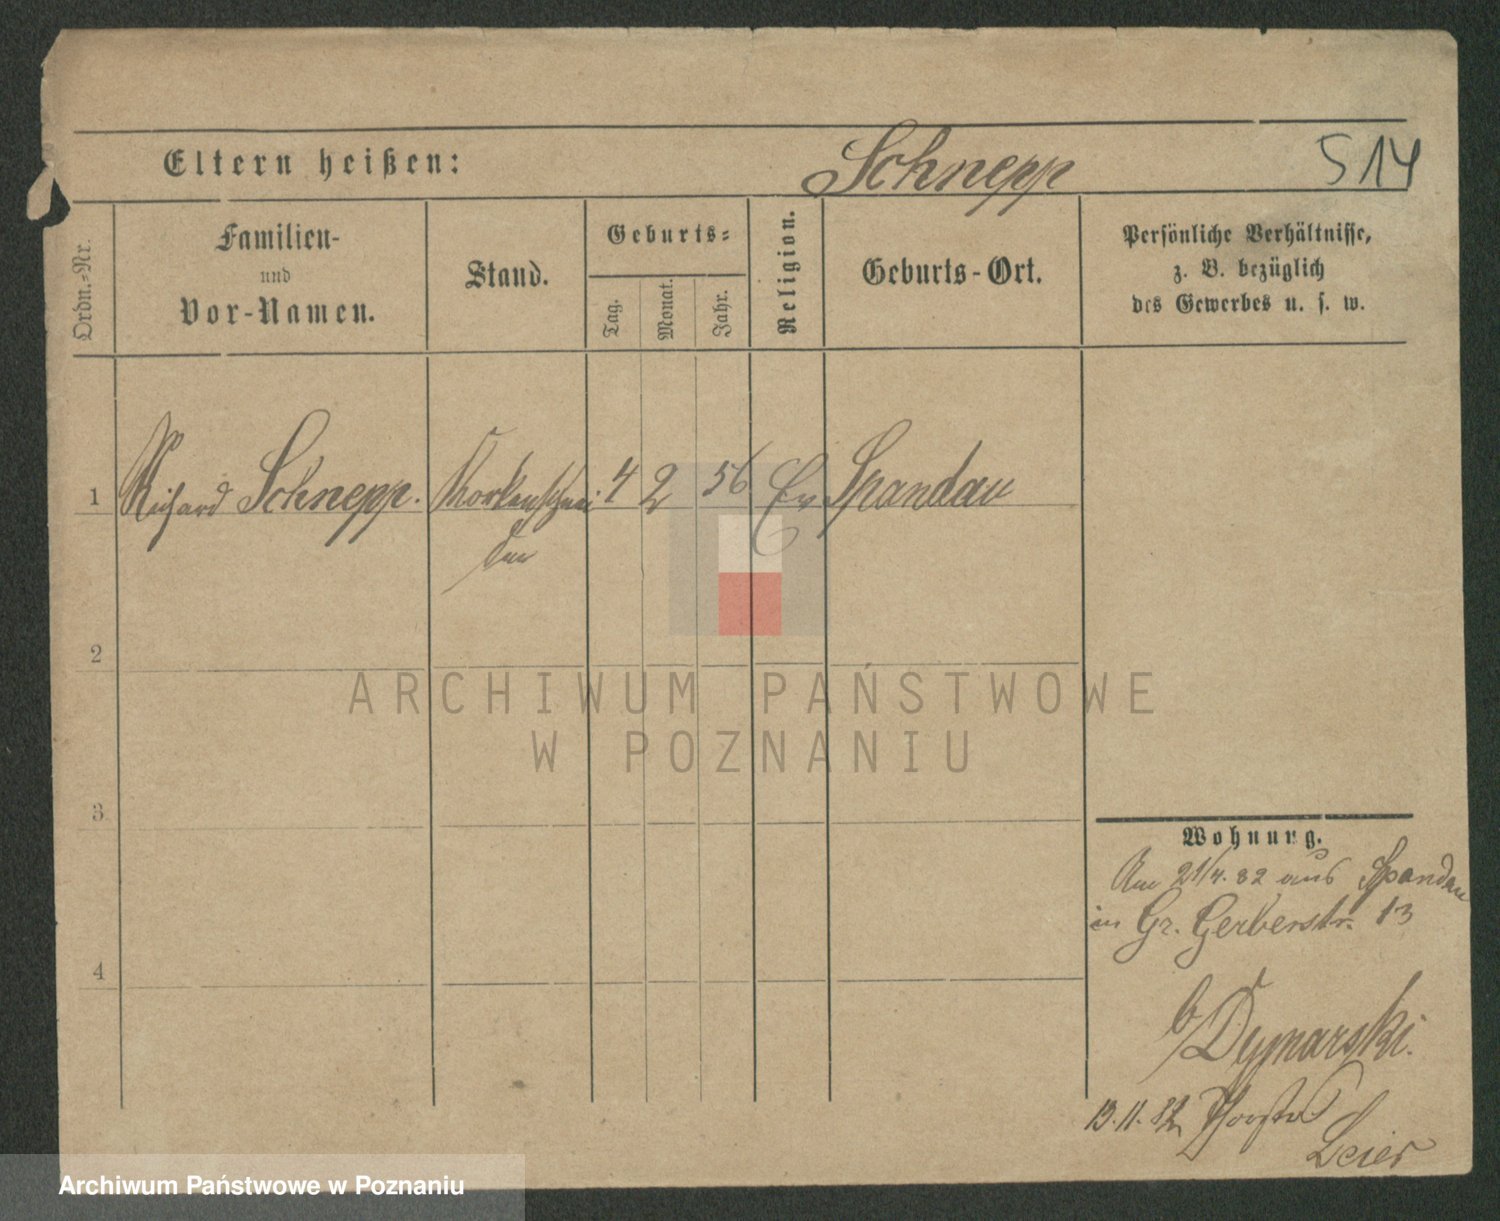 Eltern heißen:
Schnepp
514
Ordn.-Nr.
Familien-
und
Vor-Namen.
Stand.
Geburts-
Tag.
Monat.
Jahr.
Religion.
Geburts-Ort.
Persönliche Verhältnisse,
z. B. bezüglich
des Gewerbes u. s. w.
1
Richard Schnepp.
Korkenschnei
der
4
2
56
Ev
Spandau
2
3
4
ARCHIWUM PAŃSTWOWE
W POZNANIU
Wohnung.
Am 21/4.82 aus Spandau
in Gr. Gerberstr. 13
b/ Dymarski.
13.11.82
Leier
Archiwum Państwowe w Poznaniu